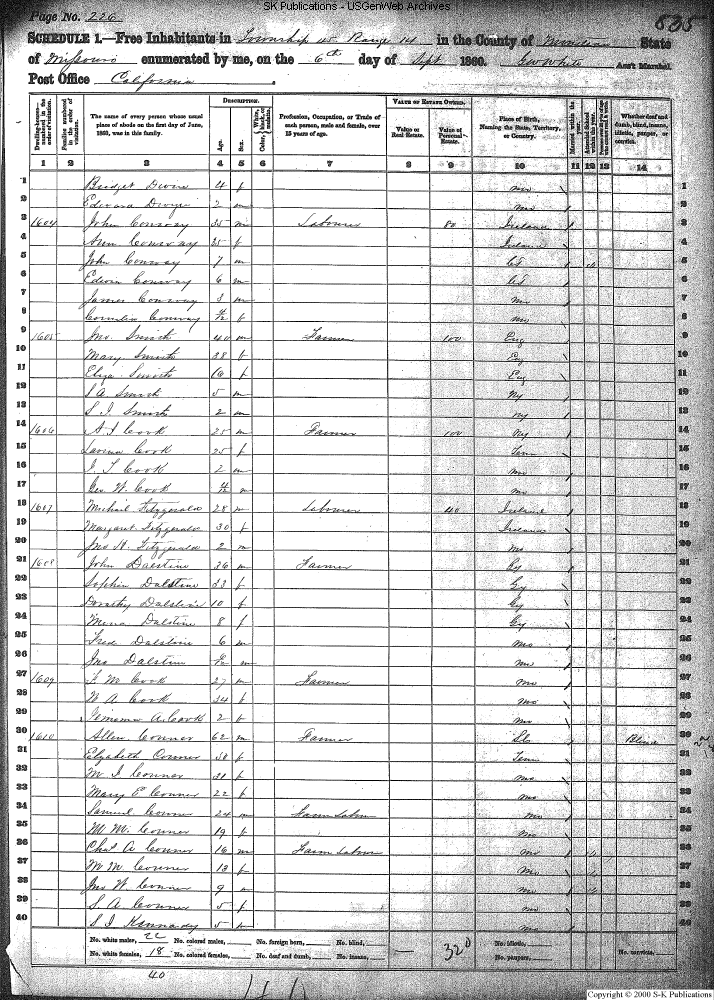 SK Publications - USGenWeb Archives
Page No. 226
835
SCHEDULE 1.—Free Inhabitants in Township 45 Range 14 in the County of State
of Missouri enumerated by me, on the 6th day of Sept 1860. Geo White Ass't Marshal.
Post Office California
DESCRIPTION. VALUE OF ESTATE OWNED.
Dwelling-houses—numbered in the order of visitation. Families numbered in the order of visitation. The name of every person whose usual place of abode on the first day of June, 1860, was in this family. Age. Sex. Color, White, black, or mulatto. Profession, Occupation, or Trade of each person, male and female, over 15 years of age. Value of Real Estate. Value of Personal Estate. Place of Birth, Naming the State, Territory, or Country. Married within the year. Attended School within the year. Whether deaf and dumb, blind, insane, idiotic, pauper, or convict.
1 2 3 4 5 6 7 8 9 10 11 12 13 14
1 Bridget 4 f Mo 1
2 Edward 2 m Mo 2
3 1604 John Conway 35 m Labourer 80 Ireland 3
4 Ann Conway 35 f Ireland 4
5 John Conway 7 m 5
6 Edwin Conway 6 m 6
7 James Conway 3 m Mo 7
8 Conway f Mo 8
9 1605 Jno. Smith 40 m Farmer 100 Eng 9
10 Mary Smith 38 f Eng 10
11 Eliza Smith f Eng 11
12 S A Smith 5 m Ny 12
13 S J Smith 2 m Ny 13
14 1606 A J Cook 25 m Farmer 100 Ny 14
15 Cook 25 f Tenn 15
16 J. T Cook 2 m Mo 16
17 Geo. W. Cook m Mo 17
18 1607 Michael Fitzgerald 28 m Labourer 40 Ireland 18
19 Margaret Fitzgerald 30 f Ireland 19
20 Jno H. Fitzgerald 2 m Mo 20
21 1608 John Dalstine 36 m Farmer Gy 21
22 Sophia Dalstine 33 f Gy 22
23 Dorothy Dalstine 10 f Gy 23
24 Mena Dalstine 8 f Gy 24
25 Fred Dalstine 6 m Mo 25
26 Jno Dalstine m Mo 26
27 1609 J. M Cook 27 m Farmer Mo 27
28 W A Cook 24 f Mo 28
29 A. Cook 2 f Mo 29
30 1610 Allen Conner 62 m Farmer Blind 30
31 Elizabeth Conner 58 f Tenn 31
32 M J Conner 31 f Mo 32
33 Mary E Conner 22 f Mo 33
34 Samuel Conner 24 m Farm Labor Mo 34
35 M M. Conner 19 f Mo 35
36 Chas A Conner 16 m Farm Labor Mo 36
37 M M Conner 13 f Mo 37
38 Jno W. Conner 9 m Mo 38
39 S A Conner 5 f Mo 39
40 S J Kennady 5 Mo 40
No. white males, 22 No. colored males, No. foreign born, No. blind, 320 No. idiotic,
No. white females, 18 No. colored females, No. deaf and dumb, No. insane, No. paupers, No. convicts,
40
Copyright © 2000 S-K Publications